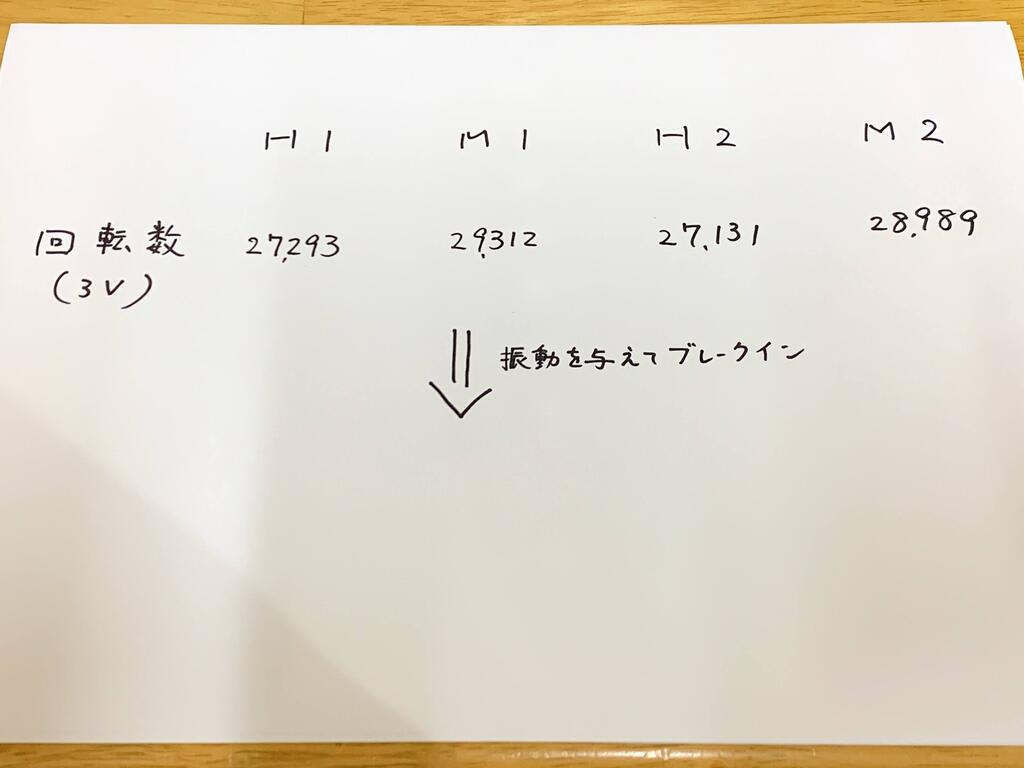 H1 M1 H2 M2
回転数 27,293 29,312 27,131 28,989
(3V)
振動を与えてブレークイン